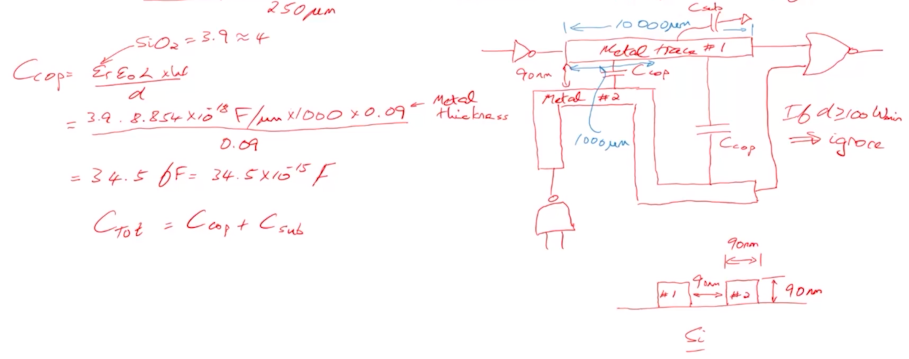 250 μm
SiO₂ = 3.9 ≈ 4
C_cop = ε_r ε_0 L × W
d
= 3.9 · 8.854 × 10⁻¹⁸ F/μm × 1000 × 0.09 ← Metal thickness
0.09
= 34.5 fF = 34.5 × 10⁻¹⁵ F
C_Tot = C_cop + C_sub
C_sub
10 000 μm
Metal trace #1
90nm
C_cop
Metal #2
1000 μm
C_cop
If d ≥ 100 Wmin
⇒ ignore
90nm
#1
90nm
#2
90nm
Si